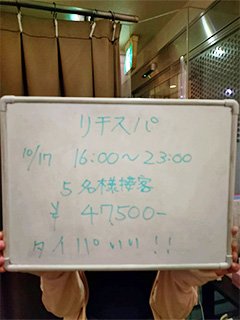 リチスパ
10/17 16:00〜23:00
5名様接客
¥ 47,500-
タイパいい!!